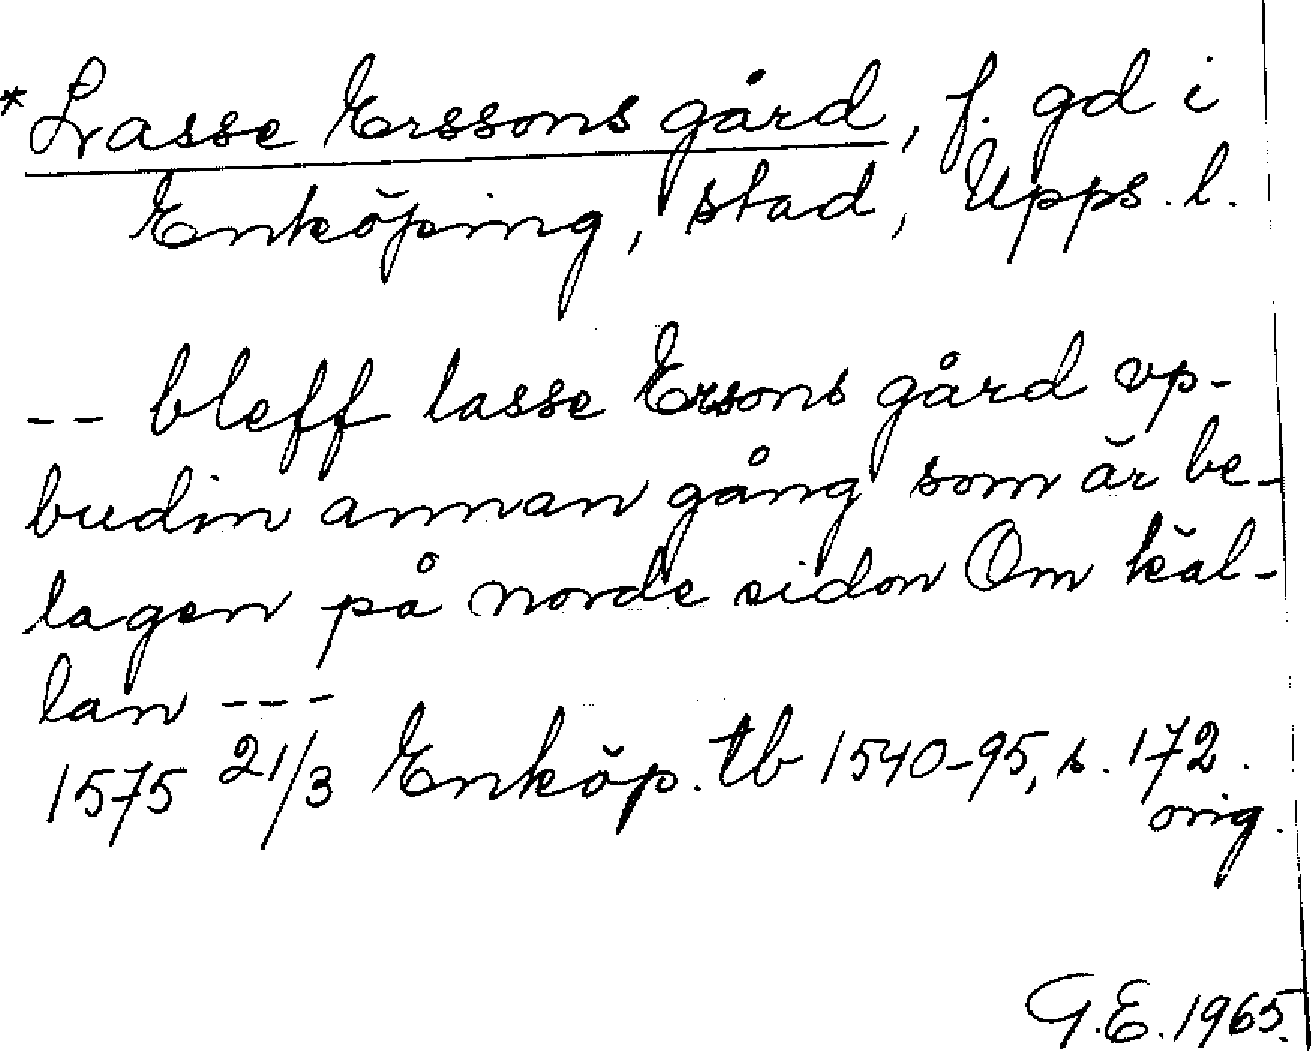 *Lasse Erssons gård, f. gd i
Enköping, stad, Upps. l.
-- bleff lasse Ersons gård vp-
budin annan gång som är be-
lagen på norde sidon Om käl-
lan ---
1575 21/3 Enköp. tb 1540-95, s. 172.
orig.
G.E. 1965.